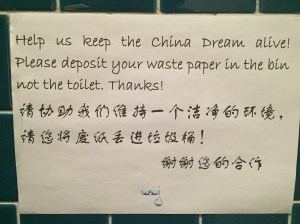 Help us keep the China Dream alive!
Please deposit your waste paper in the bin
not the toilet. Thanks!
请协助我们维持一个洁净的环境，
请您将废纸丢进垃圾桶！
谢谢您的合作